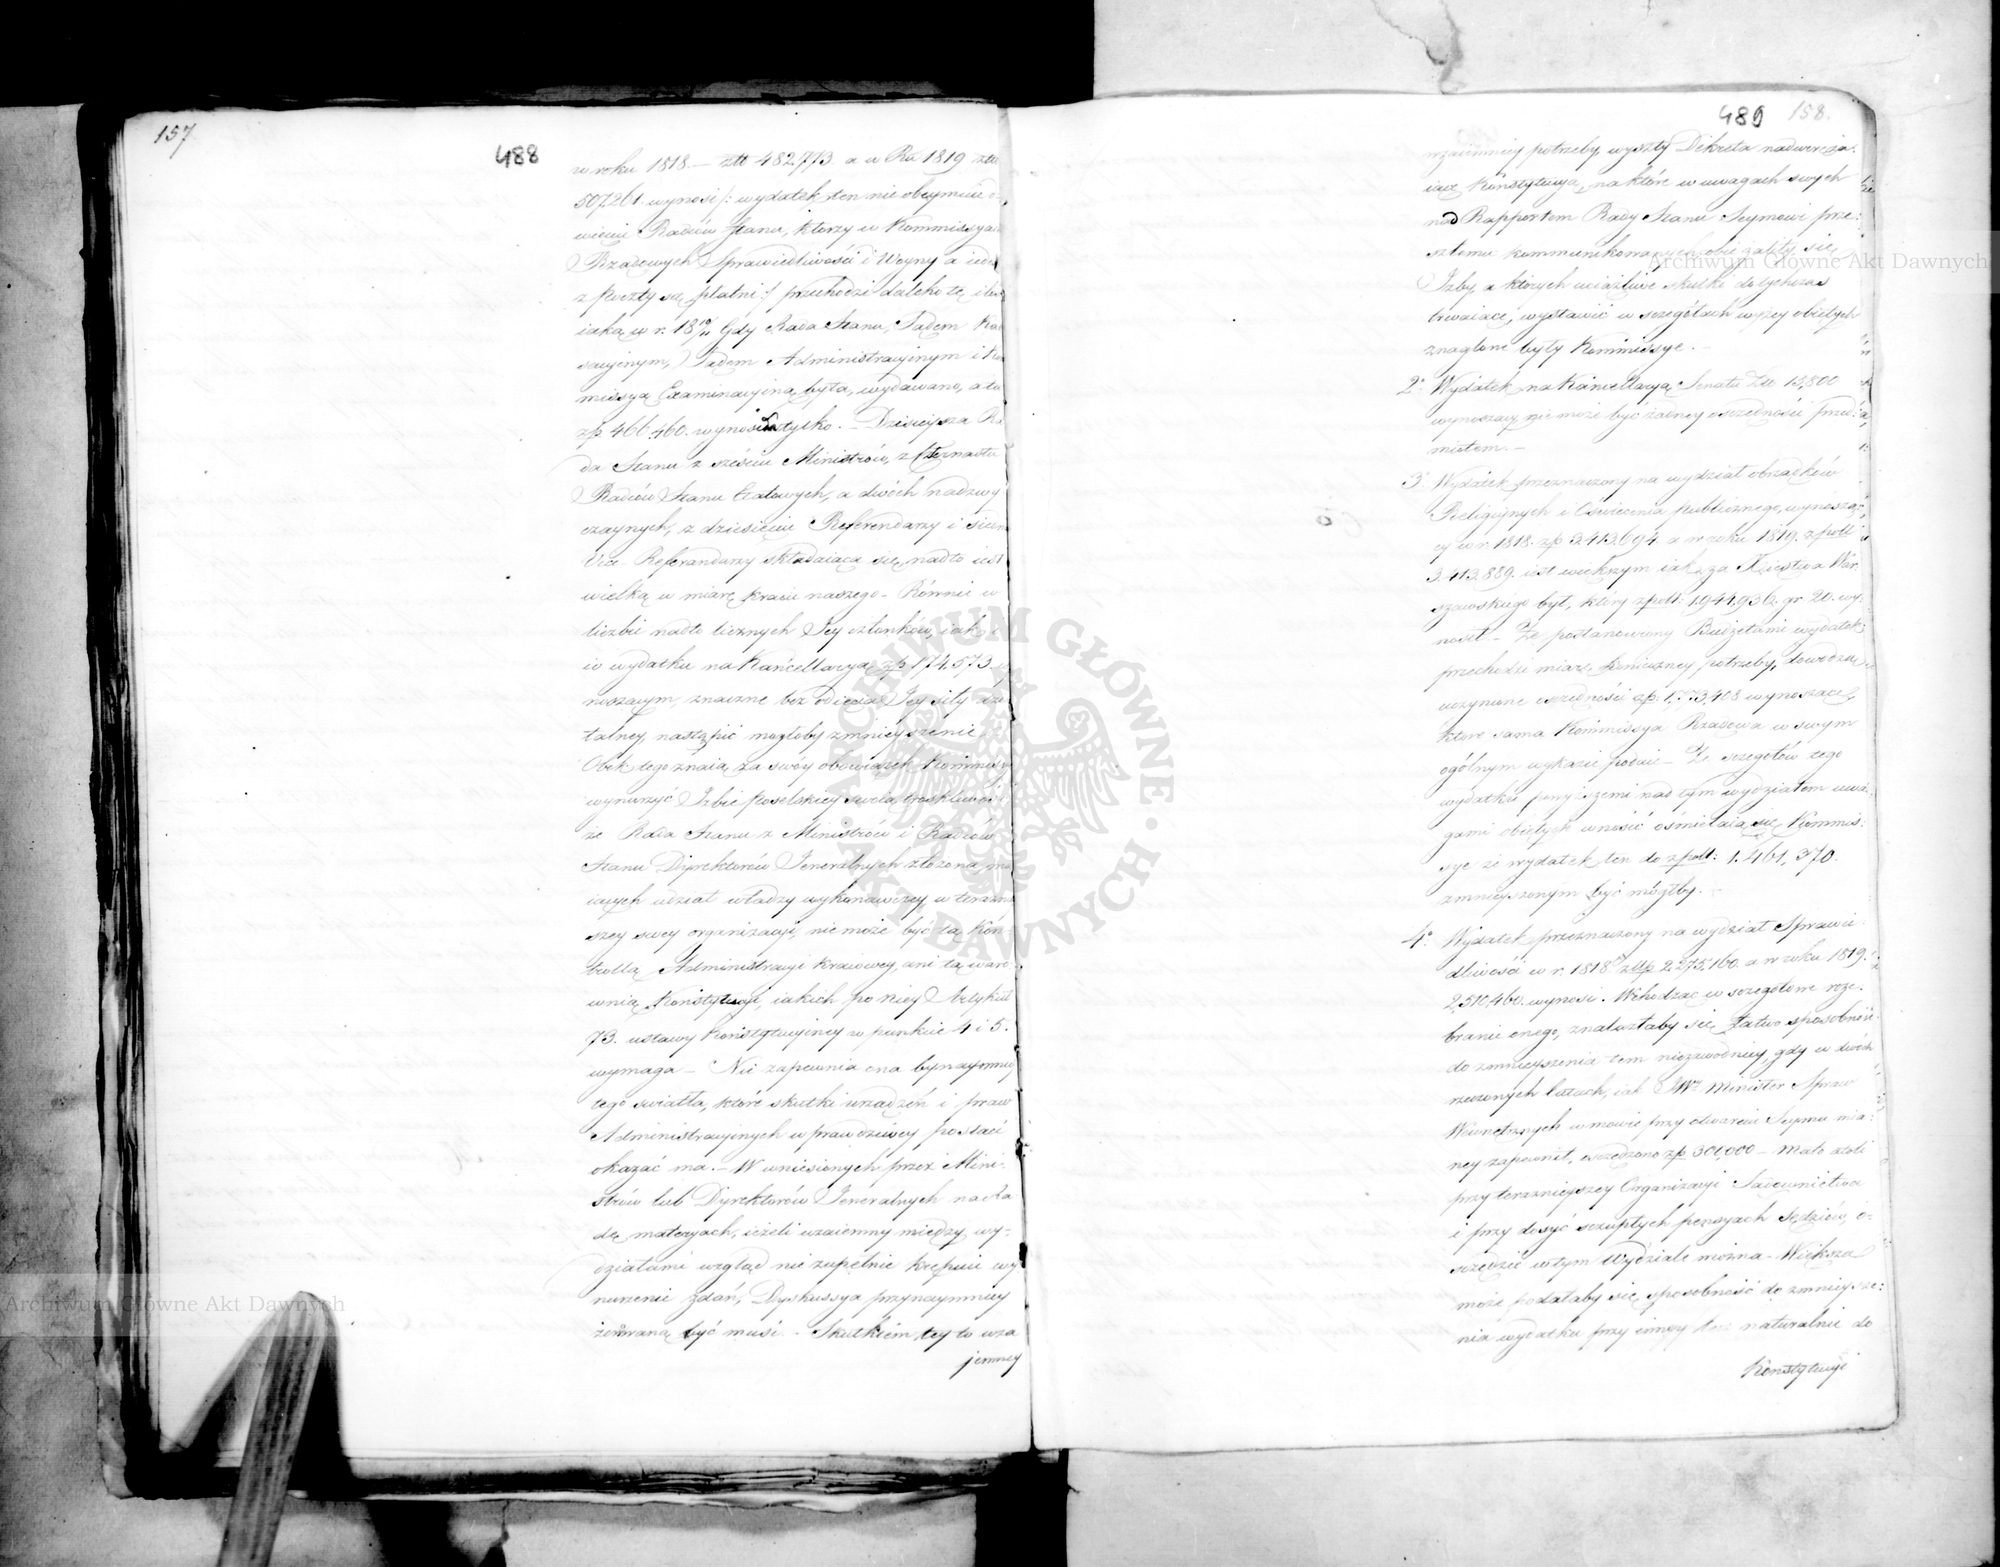 157
488
w roku 1818 – złł 482,773. a w Ru 1819 złłt
507,261 wynosi /: wydatek ten nie obeymuie
Radców Stanu, którzy w Kommissya
Rządowych Sprawiedliwości i Woyny a ieden
z Poczty są płatni :/ przechodzi daleko tę ilość
iaką w r. 18 10/11 Gdy Rada Stanu, Sądem Kas
sacyinym, Sądem Administracyinym i Ko
missyą Examinacyiną była, wydawano, a ta
zp 466,460. wynosiła tylko. – Dzisieysza Ra
da Stanu z sześciu Ministrów, z czternastu
Radców Stanu Etatowych, a dwóch nadzwy
czaynych, z dziesięciu Referendarzy i siedm
Vice-Referendarzy składaiąca się, nadto iest
wielką w miarę kraiu naszego – Równie w
liczbie nadto licznych Jey członków, iak
i w wydatku na Kancellaryą zp 174,573 wy
noszącym, znaczne bez odięcia Jey siły dzia
łalney, nastąpić mogłoby zmnieyszenie.
Obok tego znaią za swóy obowiązek Kommissye
wynurzyć Izbie Poselskiey swoią troskliwość
że Rada Stanu z Ministrów i Radców
Stanu Dyrektorów Jeneralnych złożona, ma
iących udział władzy wykonawczey, w teraźniey
szey swey organizacyi, nie może być tą Kon
trollą Administracyi kraiowey, ani tą waro
wnią Konstytucyi, iakich po niey Artykuł
73. ustawy Konstytucyiney w punkcie 4 i 5.
wymaga – Nie zapewnia ona bynaymniey
tego światła, które skutki urządzeń i praw
Administracyinych w prawdziwey postaci
okazać ma. – W wniesionych przez Mini-
strów lub Dyrektorów Jeneralnych na Ra
dę materyach, ieżeli wzaiemny między wy-
działami wzgląd nie zupełnie krępuie wy
nurzenie zdań, Dyskussya przynaymniey
być musi. – Skutkiem tey to wza
jemney
489 158.
wzaiemney potrzeby, wyszły Dekreta nadweręża-
iące Konstytucyą, na które w uwagach swych
nad Rapportem Rady Stanu Seymowi prze-
szłemu kommunikowanych obie żaliły się
Izby, a których uciążliwe skutki dotychczas
trwaiące, wystawić w szczegółach wyżey obiętych
znaglone były Kommissye. –
2° Wydatek na Kancellaryą Senatu Złł 13,800
wynoszący, nie może być żadney oszczędności przed-
miotem. –
3° Wydatek przeznaczony na wydział obrządków
Religiynych i Oświecenia publicznego, wynoszą-
cy w r. 1818. zp 3,413,694 a w roku 1819. zpoll
3,413,889. iest większym iak za Xięstwa War
szawskiego był, który zpoll: 1,944,936. gr 20. wy-
nosił. – Że postanowiony Budżetami wydatek
przechodzi miarę konieczney potrzeby, dowodzą
uczynione oszczędności zp. 1,773,408 wynoszące,
które sama Kommissya Rządowa w swym
ogólnym wykazie podaie – Ze szczegółów tego
wydatku powyższemi nad tym wydziałem uwa-
gami obiętych wnosić ośmielaią się Kommis-
sye że wydatek ten do zpoll: 1,461,370.
zmnieyszonym być mógłby. –
4° Wydatek przeznaczony na wydział Sprawie-
dliwości w r. 1818 złłp 2,275,160. a w roku 1819.
2,510,460. wynosi. Wchodząc w szczegółowe roze-
branie onego, znalazłaby się łatwo sposobność
do zmnieyszenia tem niezawodniey, gdy w dwóch
rzeczonych latach, iak JWny Minister Spraw
Wewnętrznych w mowie przy otwarciu Seymu mia-
ney zapewnił, oszczędzono zp 301,000 – Mało atoli
przy teraźnieyszey Organizacyi Sądownictwa
i przy dosyć szczupłych pensyach Sędziów, o-
szczędzić w tym Wydziale można – Większa
może podałaby się sposobność do zmnieysze-
nia wydatku przy inney naturalnie do
Konstytucyi
Archiwum Główne Akt Dawnych
Archiwum Główne Akt Dawnych
ARCHIWUM GŁÓWNE AKT DAWNYCH